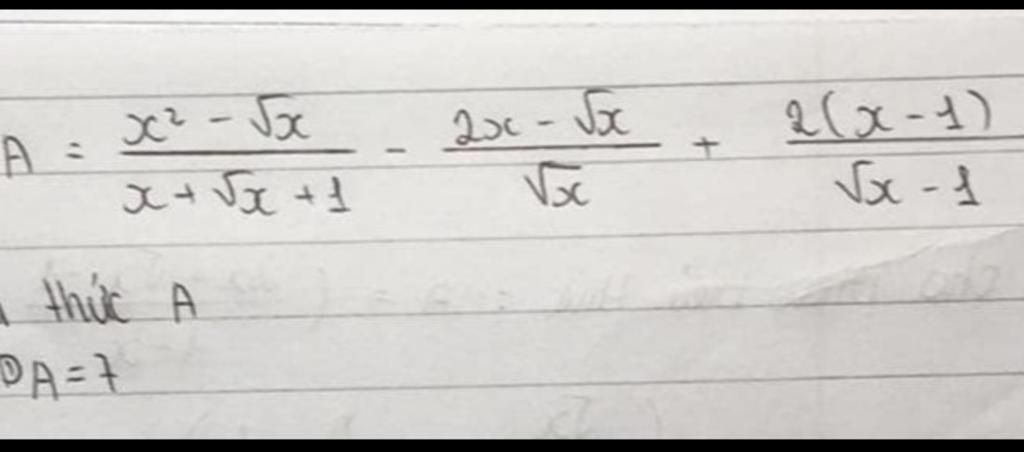 A = \frac{x² - √x}{x + √x + 1} - \frac{2x - √x}{√x} + \frac{2(x - 1)}{√x - 1}
thức A
A = 7